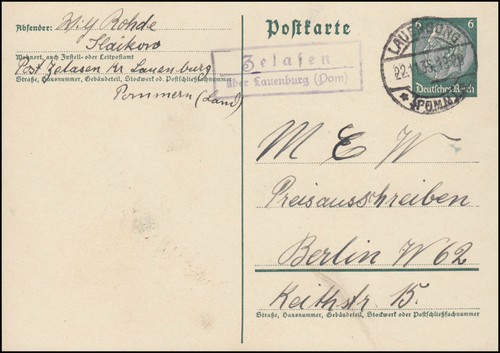 Absender: Willy Rohde
Slaikow
Wohnort, auch Zustell- oder Leitpostamt
Post Zelasen Kr Lauenburg
Straße, Hausnummer, Gebäudeteil, Stockwerk od. Postschließfachnummer
Pommern (Land)
Postkarte
Zelasen
über Lauenburg (Pom)
LAUENBURG
22.1 35
(POMM)
6
Deutsches Reich
M E W
Preisausschreiben
Berlin W 62
Keithstr. 15.
Straße, Hausnummer, Gebäudeteil, Stockwerk oder Postschließfachnummer